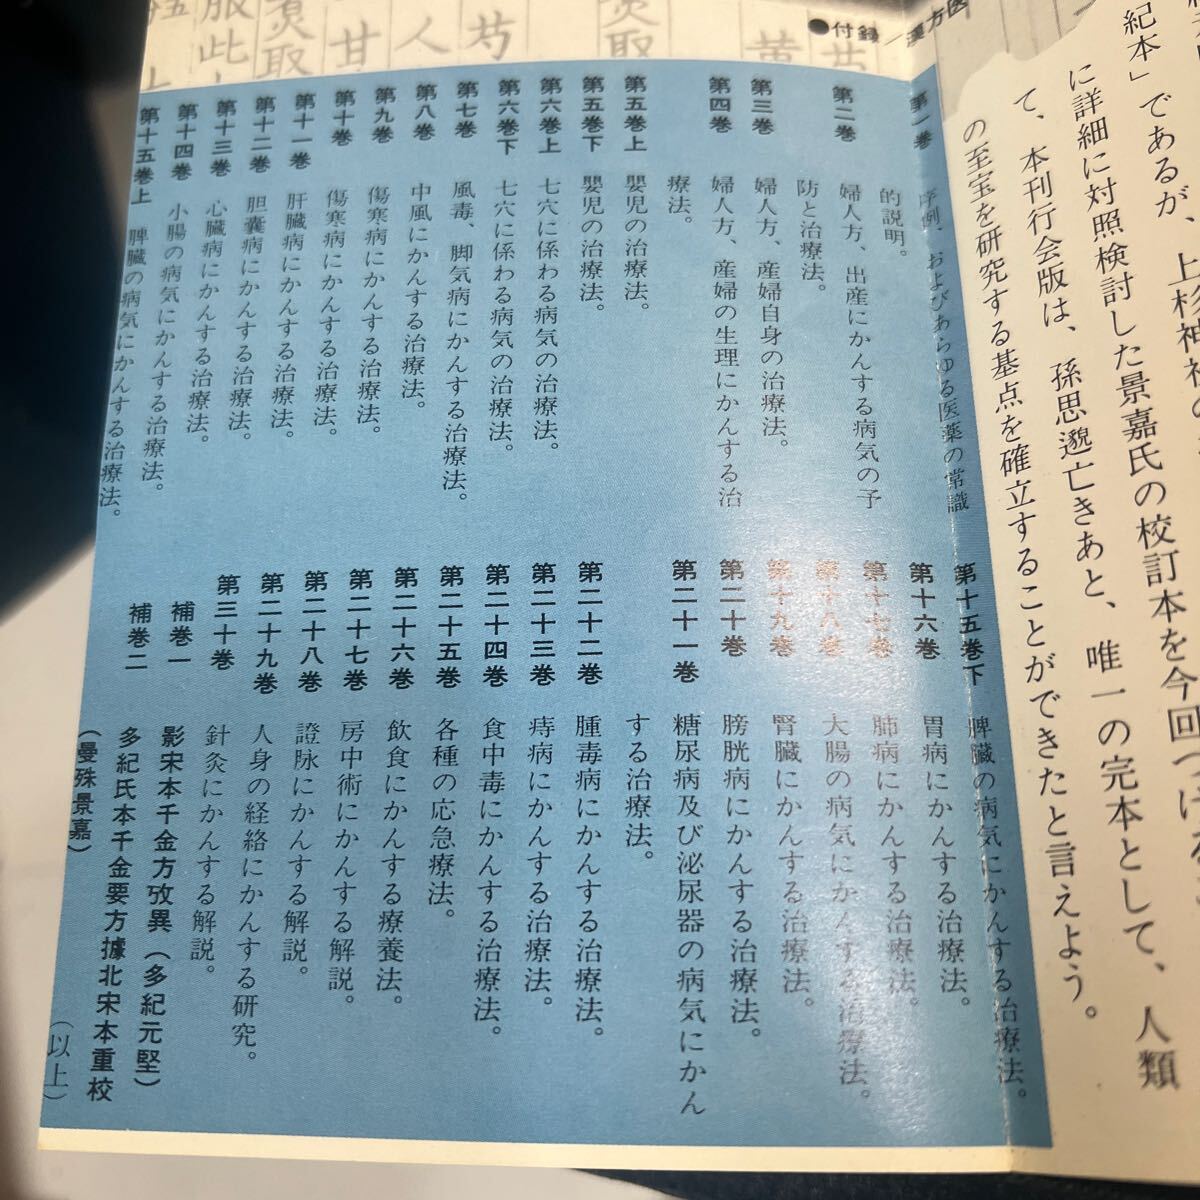 紀本」であるが、上杉神社の
に詳細に対照検討した景嘉氏の校訂本を今回つけ
て、本刊行会版は、孫思邈亡きあと、唯一の完本として、人類
の至宝を研究する基点を確立することができたと言えよう。
●付録／漢方医
第一巻　序例、およびあらゆる医薬の常識
的説明。
第二巻　婦人方、出産にかんする病気の予
防と治療法。
第三巻　婦人方、産婦自身の治療法。
第四巻　婦人方、産婦の生理にかんする治
療法。
第五巻上　嬰児の治療法。
第五巻下　嬰児の治療法。
第六巻上　七穴に係わる病気の治療法。
第六巻下　七穴に係わる病気の治療法。
第七巻　風毒、脚気病にかんする治療法。
第八巻　中風にかんする治療法。
第九巻　傷寒病にかんする治療法。
第十巻　傷寒病にかんする治療法。
第十一巻　肝臓病にかんする治療法。
第十二巻　胆囊病にかんする治療法。
第十三巻　心臓病にかんする治療法。
第十四巻　小腸の病気にかんする治療法。
第十五巻上　脾臓の病気にかんする治療法。
第十五巻下　脾臓の病気にかんする治療法。
第十六巻　胃病にかんする治療法。
第十七巻　肺病にかんする治療法。
第十八巻　大腸の病気にかんする治療法。
第十九巻　腎臓にかんする治療法。
第二十巻　膀胱病にかんする治療法。
第二十一巻　糖尿病及び泌尿器の病気にかん
する治療法。
第二十二巻　腫毒病にかんする治療法。
第二十三巻　痔病にかんする治療法。
第二十四巻　食中毒にかんする治療法。
第二十五巻　各種の応急療法。
第二十六巻　飲食にかんする療養法。
第二十七巻　房中術にかんする解説。
第二十八巻　證脉にかんする解説。
第二十九巻　人身の経絡にかんする研究。
第三十巻　針灸にかんする解説。
補巻一　影宋本千金方攷異（多紀元堅）
補巻二　多紀氏本千金要方據北宋本重校
（曼殊景嘉）
（以上）